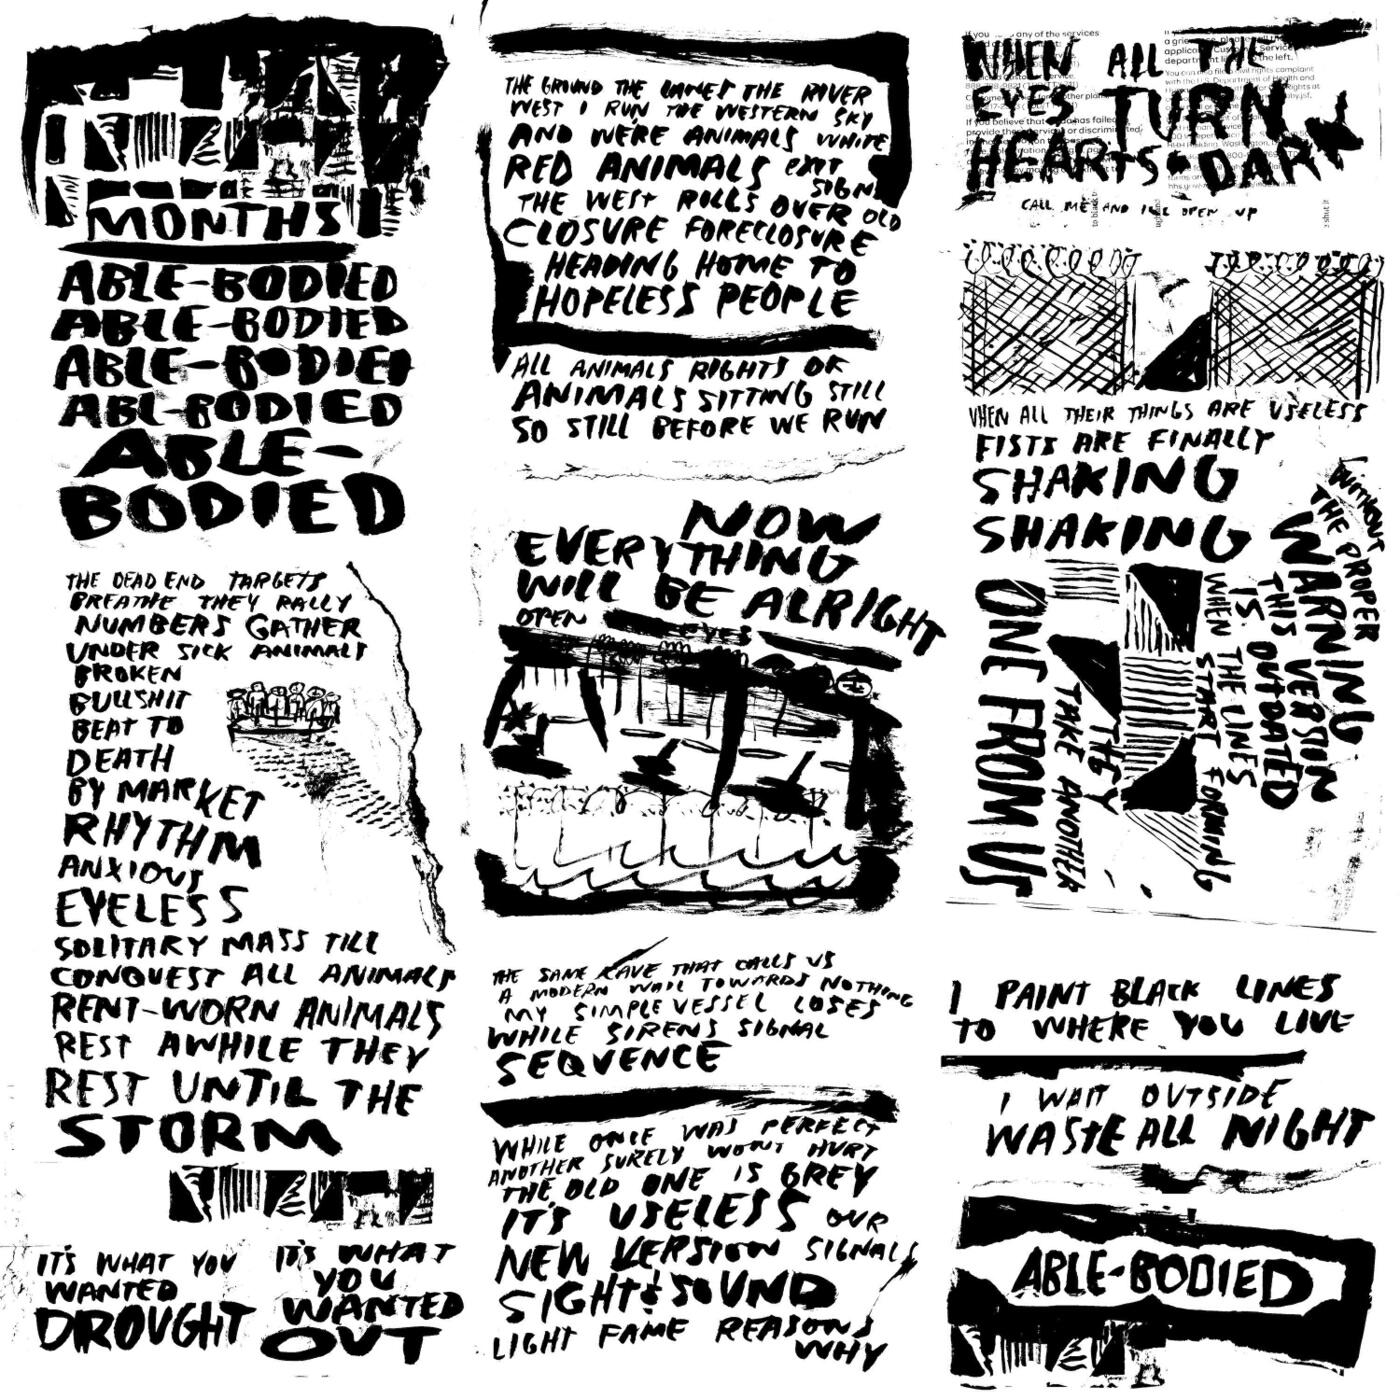 MONTHS
ABLE-BODIED
ABLE-BODIED
ABLE-BODIED
ABL-BODIED
ABLE-
BODIED
THE DEAD END TARGETS
BREATHE THEY RALLY
NUMBERS GATHER
UNDER SICK ANIMALS
BROKEN
BULLSHIT
BEAT TO
DEATH
BY MARKET
RHYTHM
ANXIOUS
EYELESS
SOLITARY MASS TILL
CONQUEST ALL ANIMALS
RENT-WORN ANIMALS
REST AWHILE THEY
REST UNTIL THE
STORM
IT'S WHAT YOU
WANTED
DROUGHT
IT'S WHAT
YOU
WANTED
OUT
THE GROUND THE THE RIVER
WEST I RUN THE WESTERN SKY
AND WERE ANIMALS WHITE
RED ANIMALS EXIT
SIGNS
THE WEST ROLLS OVER OLD
CLOSURE FORECLOSURE
HEADING HOME TO
HOPELESS PEOPLE
ALL ANIMALS RIGHTS OF
ANIMALS SITTING STILL
SO STILL BEFORE WE RUN
NOW
EVERYTHING
WILL BE ALRIGHT
OPEN EYES
THE SAME CAVE THAT CALLS US
A MODERN WAIL TOWARDS NOTHING
MY SIMPLE VESSEL LOSES
WHILE SIRENS SIGNAL
SEQUENCE
WHILE ONCE WAS PERFECT
ANOTHER SURELY WON'T HURT
THE OLD ONE IS GREY
IT'S USELESS OUR
NEW VERSION SIGNALS
SIGHT & SOUND
LIGHT FAME REASONS
WHY
WHEN ALL THE
EYES TURN
HEARTS DARK
CALL ME AND I'LL OPEN UP
WHEN ALL THEIR THINGS ARE USELESS
FISTS ARE FINALLY
SHAKING
SHAKING
WITHOUT
THE PROPER
WARNING
THIS VERSION
IS OUTDATED
WHEN THE LINES
START FORMING
THEY
TAKE ANOTHER
ONE FROM US
I PAINT BLACK LINES
TO WHERE YOU LIVE
I WAIT OUTSIDE
WASTE ALL NIGHT
ABLE-BODIED